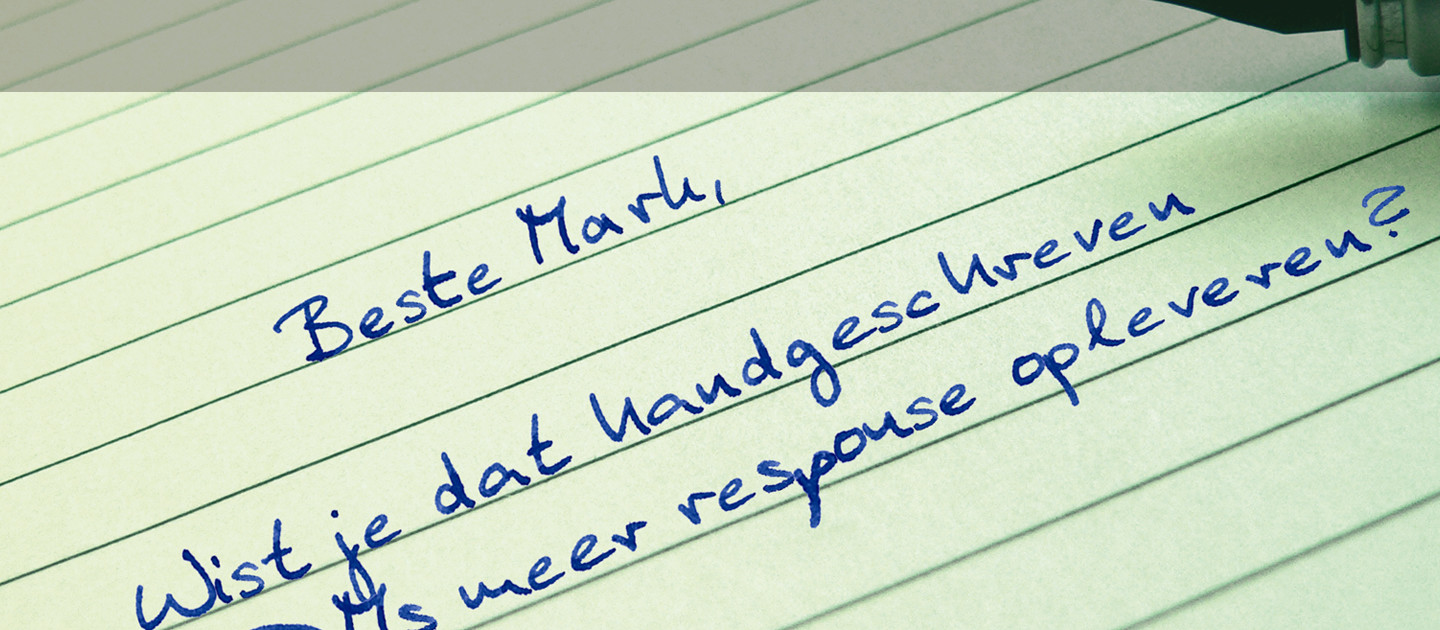 Beste Mark,
Wist je dat handgeschreven
DMs meer response opleveren?